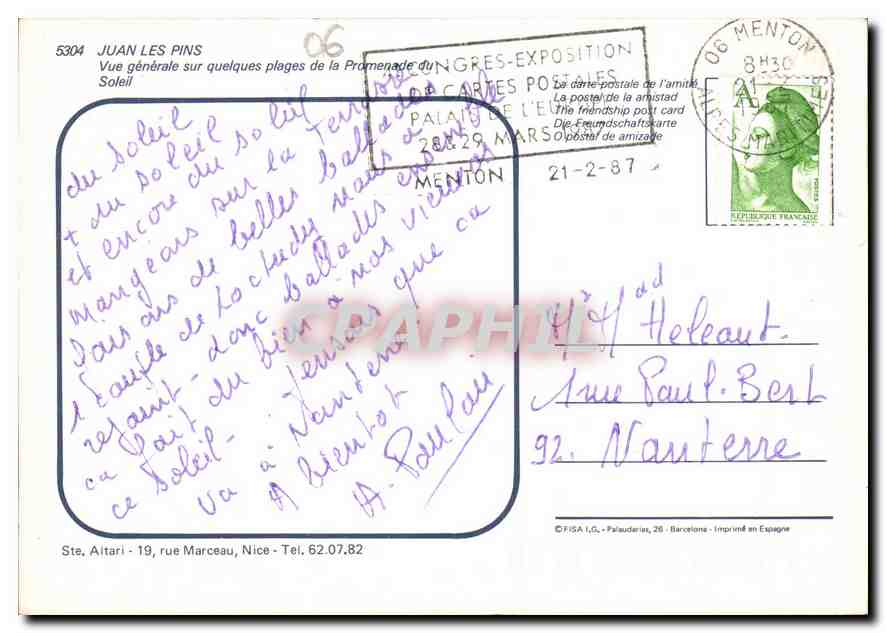 5304 JUAN LES PINS
Vue générale sur quelques plages de la Promenade du
Soleil
06
CONGRES-EXPOSITION
CARTES POSTALES
PALAIS DE L'EUROPE
28&29 MARS 1987
MENTON 21-2-87
06 MENTON
8H30
21-2
ALPES MARITIMES
La carte postale de l'amitié
La postal de la amistad
The friendship post card
Die Freundschaftskarte
O postal de amizade
A
POSTES
REPUBLIQUE FRANÇAISE
du soleil
+ du soleil
et encore du soleil
mangeons sur la terrasse
faisons de belles ballades
1 couple de nous a
rejoint - donc ballades ensemble
ca fait du bien à nos vieux os
ce soleil - Pensons que ca
va à Nanterre
A bientot
A. Paulau
CPAPHIL
Mr Mad Heleaut.
1 rue Paul. Bert
92. Nanterre
©FISA I.G. - Palaudarias, 26 - Barcelona - Imprimé en Espagne
Ste. Altari - 19, rue Marceau, Nice - Tel. 62.07.82